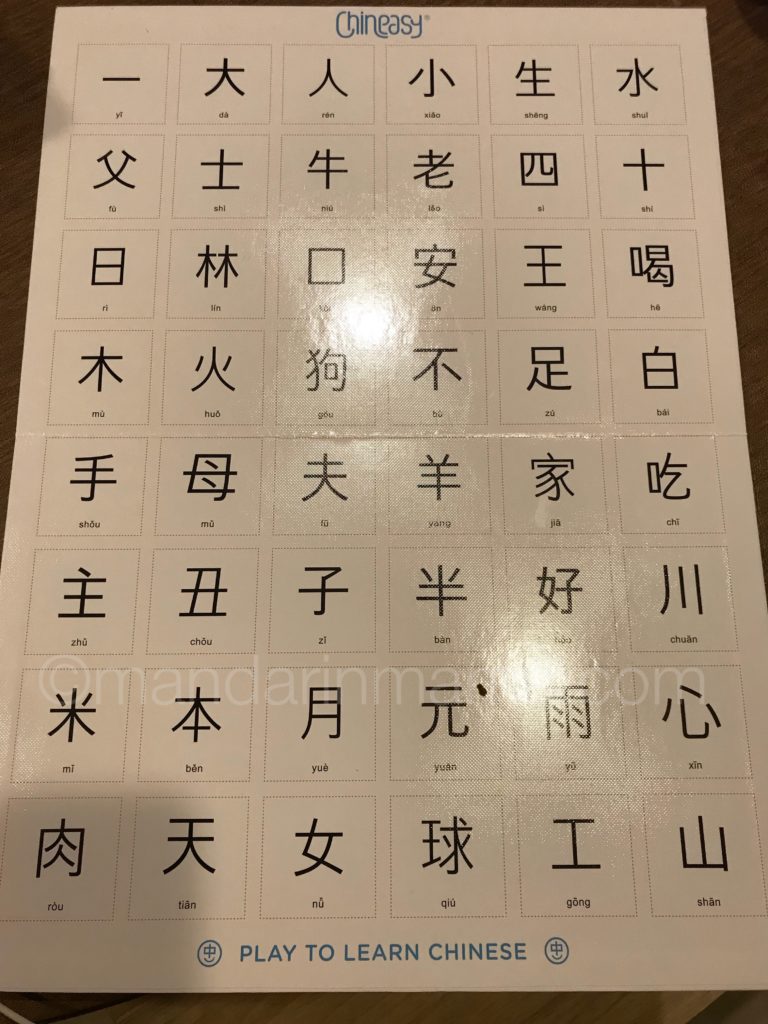 Chineasy®
一 大 人 小 生 水
yī dà rén xiǎo shēng shuǐ
父 士 牛 老 四 十
fù shì niú lǎo sì shí
日 林 口 安 王 喝
rì lín ān wáng hē
木 火 狗 不 足 白
mù huǒ gǒu bù zú bái
手 母 夫 羊 家 吃
shǒu mǔ fū yáng jiā chī
主 丑 子 半 好 川
zhǔ chǒu zǐ bàn chuān
©mandarinma .com
米 本 月 元 雨 心
mǐ běn yuè yuán yǔ xīn
肉 天 女 球 工 山
ròu tiān nǚ qiú gōng shān
中 PLAY TO LEARN CHINESE 中